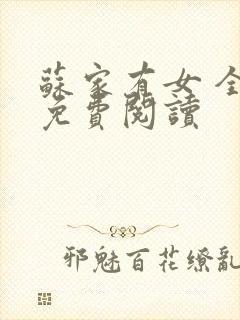 蘇家有女 全
免費閱讀
邪魅百花繚亂